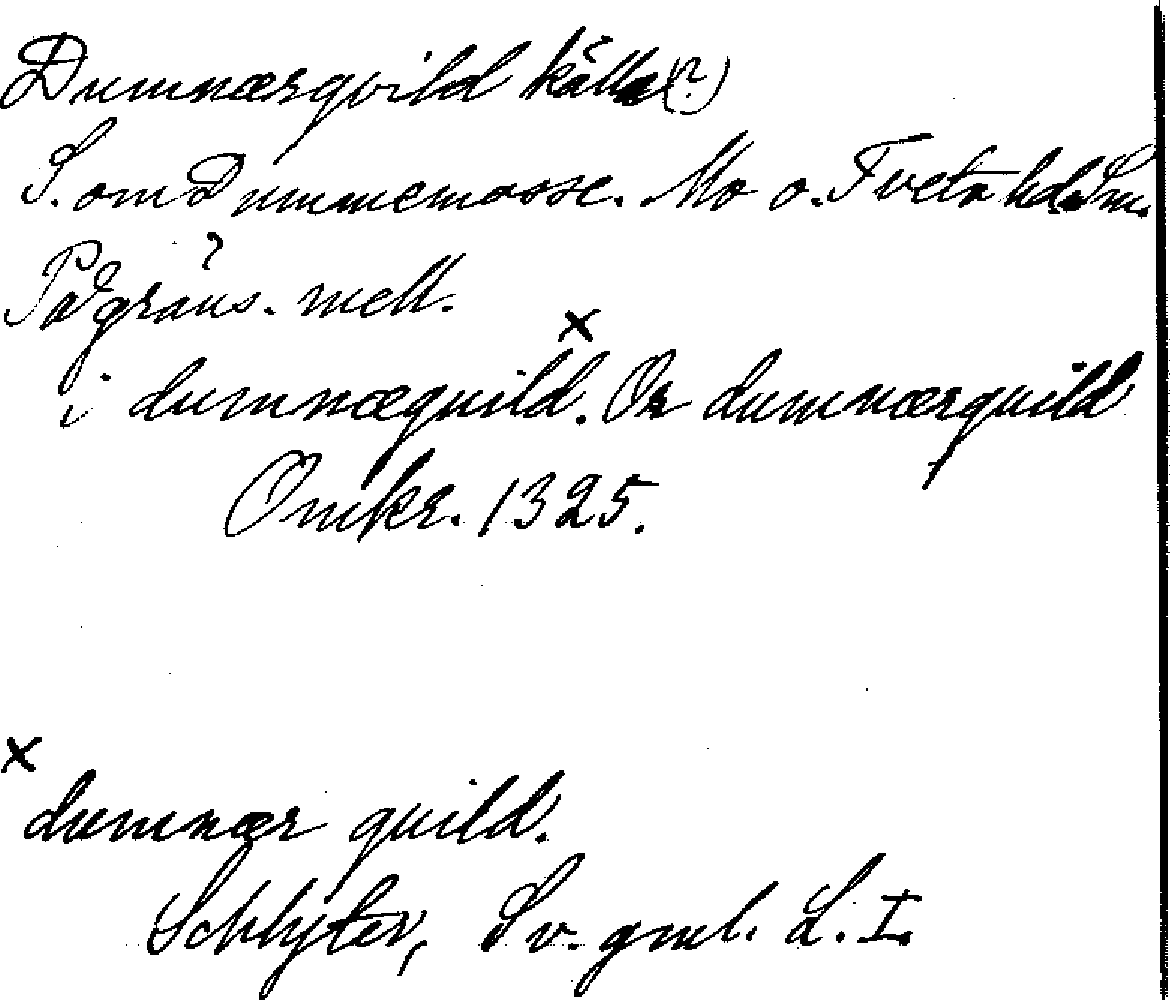 Dumnærqvild källa (?)
S. om Dummemosse. Mo o. Tveta hd. Sm.
På gräns. mell. ?
i dumnæquild. × Or dumnærquild
Omkr. 1325.
× dumnær quild.
Schlyter, Sv. gml. L. I.